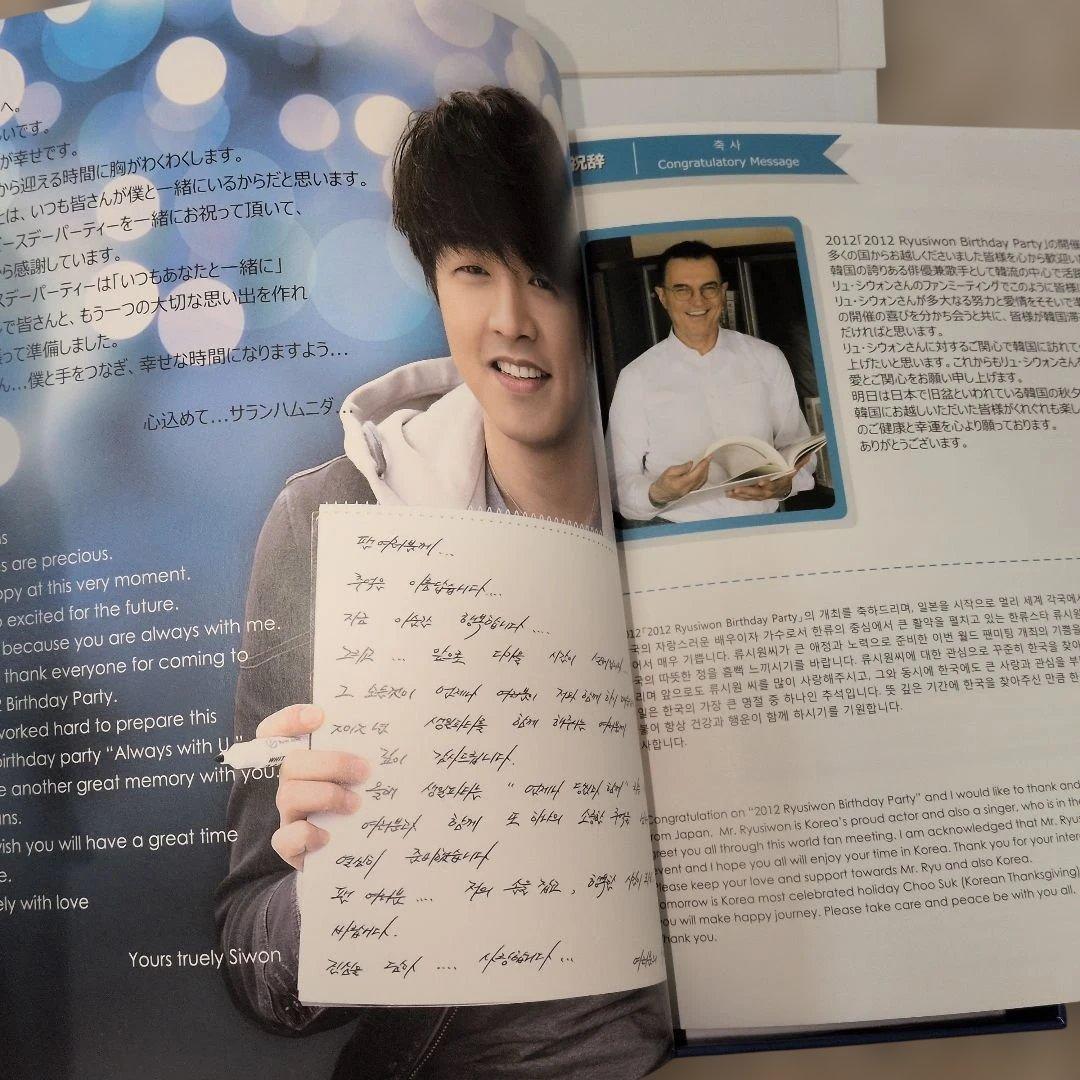 へ。
いです。
が幸せです。
から迎える時間に胸がわくわくします。
とは、いつも皆さんが僕と一緒にいるからだと思います。
ースデーパーティーを一緒にお祝って頂いて、
ら感謝しています。
スデーパーティーは「いつもあなたと一緒に」
で皆さんと、もう一つの大切な思い出を作れ
って準備しました。
ん…僕と手をつなぎ、幸せな時間になりますよう…
心込めて…サランハムニダ…
s are precious.
ppy at this very moment.
excited for the future.
because you are always with me.
thank everyone for coming to
Birthday Party.
worked hard to prepare this
birthday party “Always with U.”
e another great memory with you.
ans.
ish you will have a great time
e.
ely with love
Yours truely Siwon
팬 여러분께...
추억은 아름답습니다....
지금 이순간 행복합니다....
그리고 ... 앞으로 다가올 시간이
그 모든것이 언제나 여러분이 저와 함께
생일파티를 함께 해주시는 여러분께
깊이 감사드립니다.
올해 생일파티는 "언제나 당신과 함께"
여러분과 함께 또 하나의 소중한 추억을
열심히 준비했습니다
팬 여러분.... 저의 손을 잡고, 행복한 시간이
바랍니다.
진심을 담아 .... 사랑합니다...
祝辞
축 사
Congratulatory Message
2012「2012 Ryusiwon Birthday Party」の開催
多くの国からお越しくださいました皆様を心から歓迎い
韓国の誇りある俳優兼歌手として韓流の中心で活躍
リュ・シウォンさんのファンミーティングでこのように皆様に
リュ・シウォンさんが多大なる努力と愛情をそそいで準
の開催の喜びを分かち会うと共に、皆様が韓国滞
だければと思います。
リュ・シウォンさんに対するご関心で韓国に訪れて
上げたいと思います。これからもリュ・シウォンさん
愛とご関心をお願い申し上げます。
明日は日本で旧盆といわれている韓国の秋夕
韓国にお越しいただいた皆様がくれぐれも楽し
のご健康と幸運を心より願っております。
ありがとうございます。
12「2012 Ryusiwon Birthday Party」의 개최를 축하드리며, 일본을 시작으로 멀리 세계 각국에서
국의 자랑스러운 배우이자 가수로서 한류의 중심에서 큰 활약을 펼치고 있는 한류스타 류시원
어서 매우 기쁩니다. 류시원씨가 큰 애정과 노력으로 준비한 이번 월드 팬미팅 개최의 기쁨을
국의 따뜻한 정을 흠뻑 느끼시기를 바랍니다. 류시원씨에 대한 관심으로 꾸준히 한국을 찾아
리며 앞으로도 류시원 씨를 많이 사랑해주시고, 그와 동시에 한국에도 큰 사랑과 관심을 부
일은 한국의 가장 큰 명절 중 하나인 추석입니다. 뜻 깊은 기간에 한국을 찾아주신 만큼 한
불어 항상 건강과 행운이 함께 하시기를 기원합니다.
사합니다.
ongratulation on “2012 Ryusiwon Birthday Party” and I would like to thank and
rom Japan. Mr. Ryusiwon is Korea’s proud actor and also a singer, who is in the
reet you all through this world fan meeting. I am acknowledged that Mr. Ryus
vent and I hope you all will enjoy your time in Korea. Thank you for your inter
lease keep your love and support towards Mr. Ryu and also Korea.
omorrow is Korea most celebrated holiday Choo Suk (Korean Thanksgiving)
ou will make happy journey. Please take care and peace be with you all.
hank you.